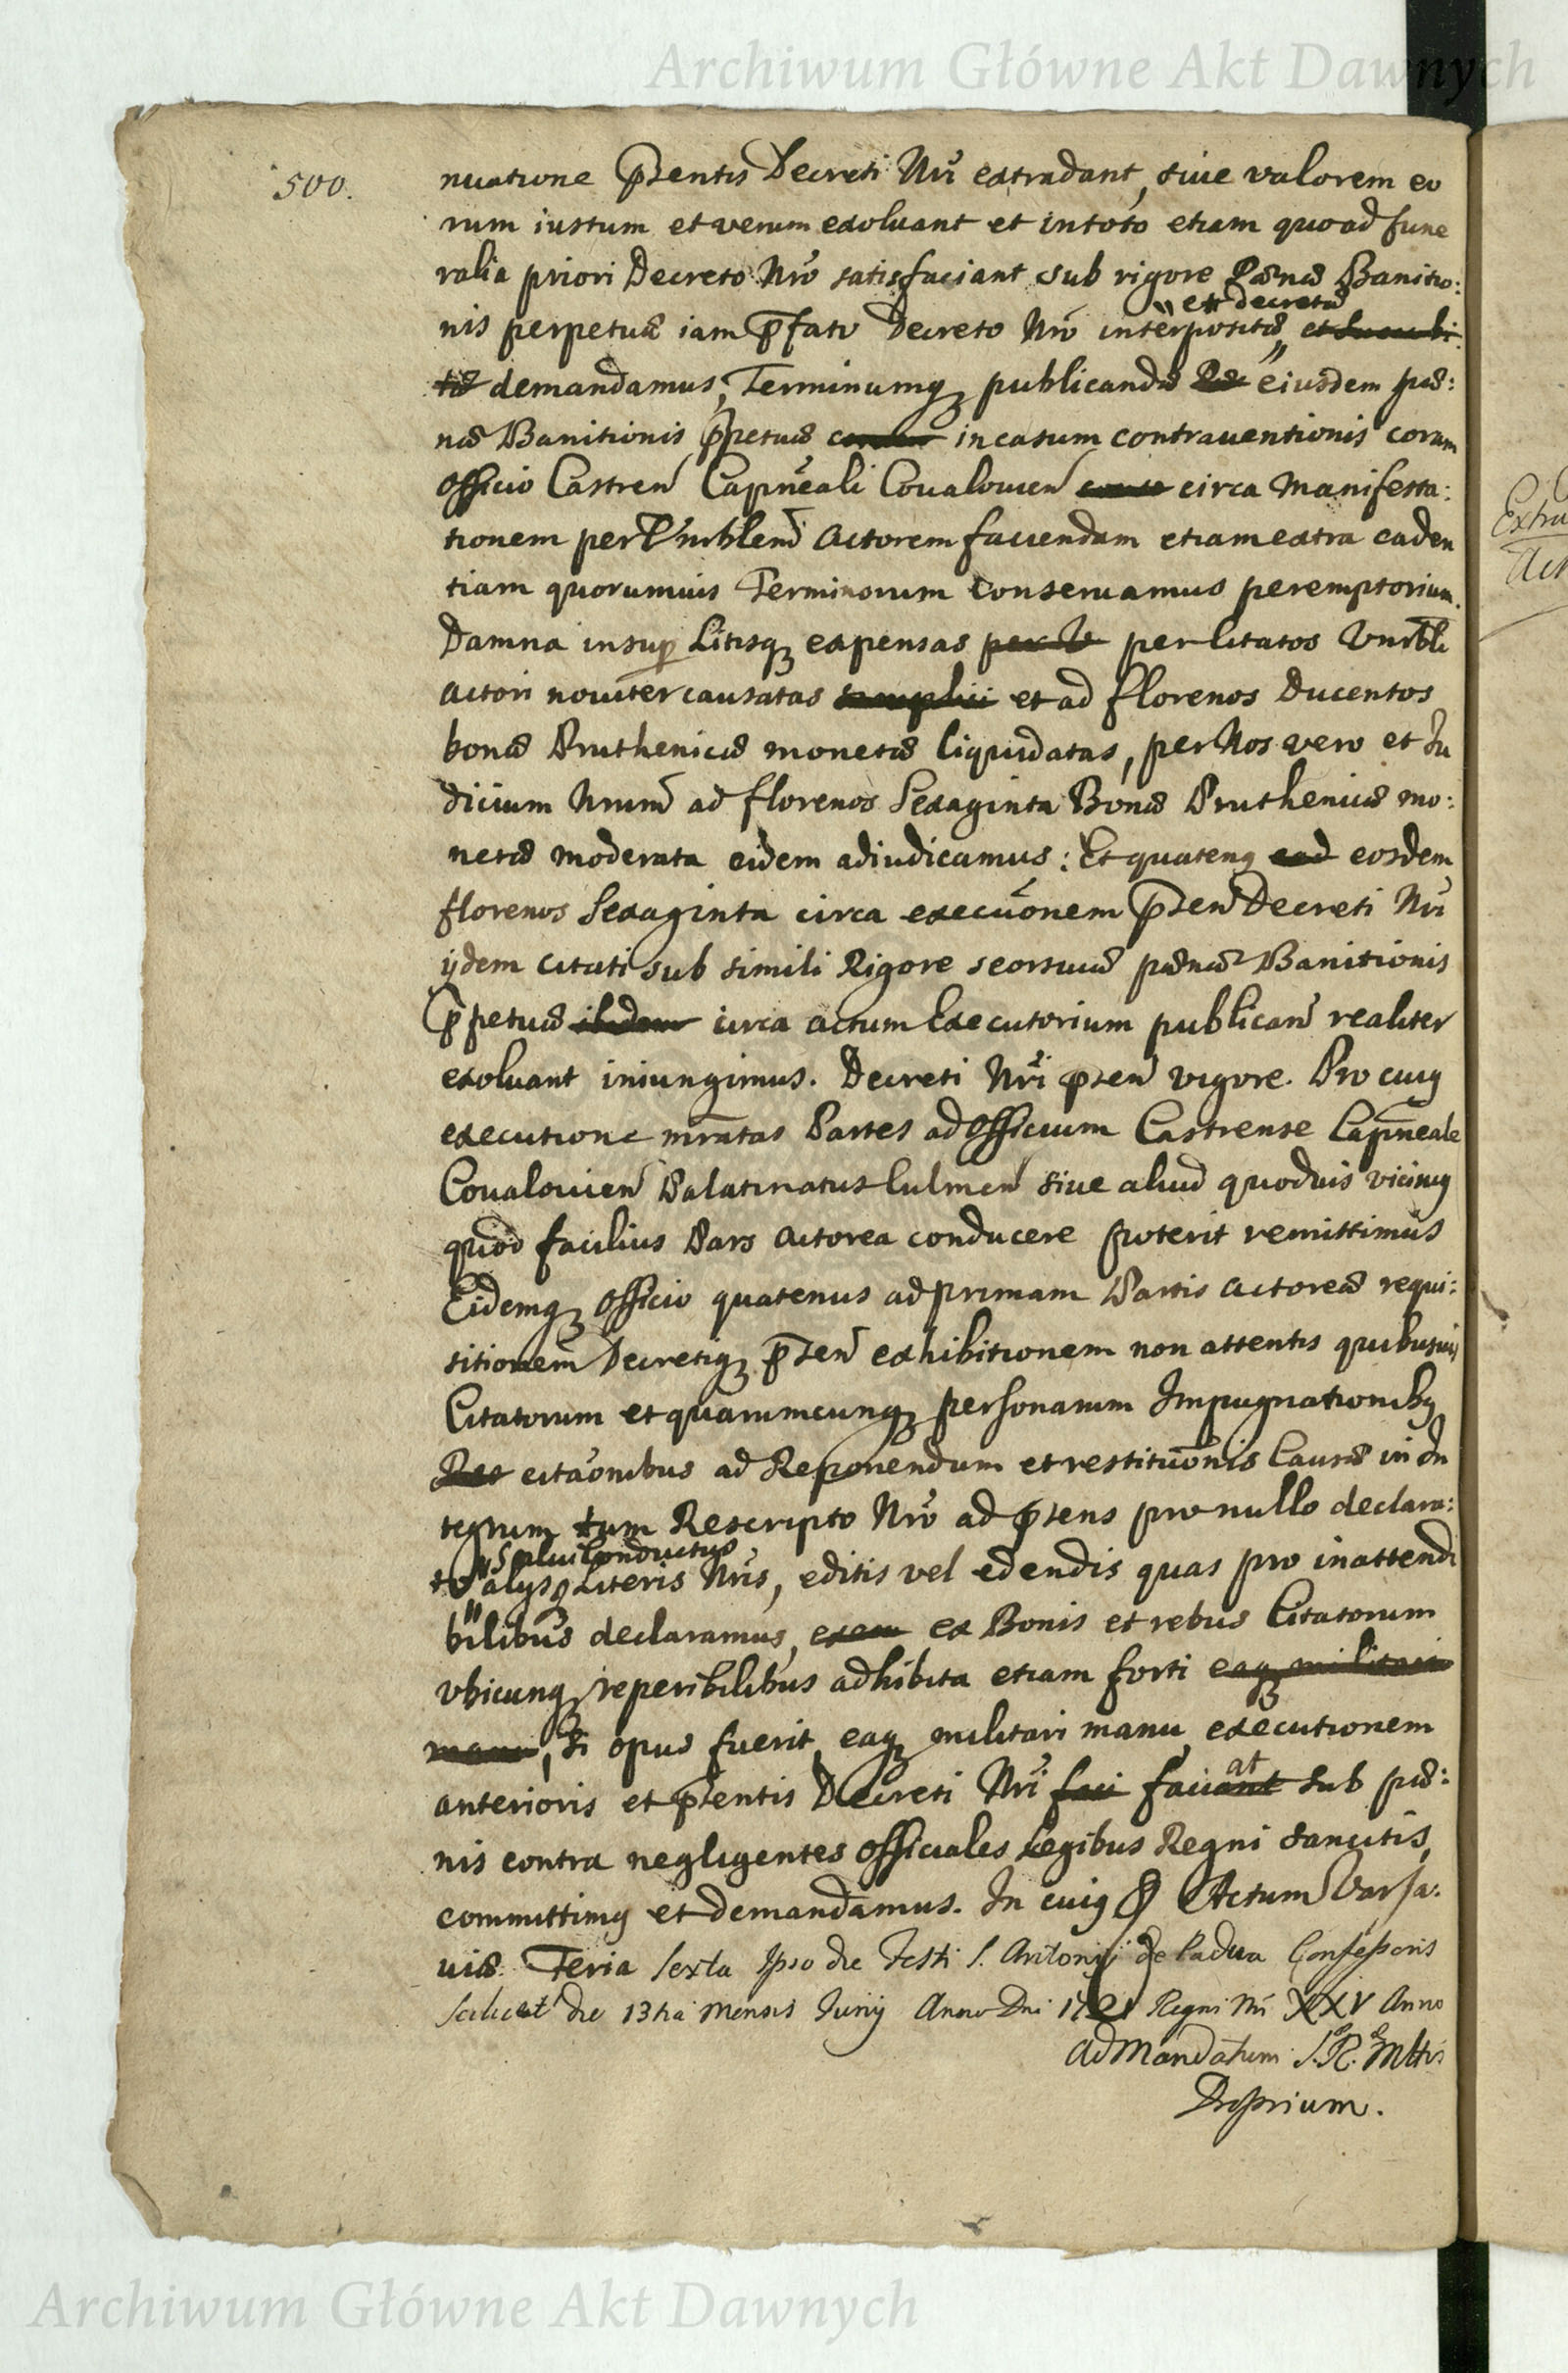 Archiwum Główne Akt Dawnych
500.
nuatione p̄sentis Decreti Nr̄i extradant, siue valorem eo
rum iustum et verum exoluant et in toto etiam quoad fune
ralia priori Decreto Nr̄o satisfaciant sub rigore Pænæ Banitio:
et decretæ
nis perpetuæ iam p̄fato Decreto Nr̄o interpositæ,
demandamus, Terminumq publicandæ eiusdem pæ:
næ Banitionis p̄petuæ in casum contrauentionis coram
Officio Castren̄ Capn̄eali Coualouien̄ circa Manifesta:
tionem per Vnrblem̄ Actorem faciendam etiam extra caden
tiam quorumuis Terminorum conseruamus peremptorium.
Damna insup Litisq expensas per Citatos Vnrbli
Actori nouiter causatas et ad florenos Ducentos
bonæ Pruthenicæ monetæ liquidatas, per Nos vero et Iu
dicium Nrum̄ ad florenos Sexaginta Bonæ Pruthenicæ mo:
netæ moderata eidem adiudicamus: Et quatenq eosdem
florenos Sexaginta circa execūonem p̄sen̄ Decreti Nr̄i
ijdem Citati sub simili Rigore seorsiuæ pænæ Banitionis
p̄petuæ circa actum Executorium publican̄ realiter
exoluant iniungimus. Decreti Nr̄i p̄sen̄ vigore. Pro cuiq
executione mr̄atas Partes ad Officium Castrense Capn̄eale
Coualouien̄ Palatinatus Culmen̄ siue aliud quoduis vicinq
quod facilius Pars Actorea conducere poterit remittimus
Eidemq Officio quatenus ad primam Partis Actoreæ requi:
sitionem Decretiq p̄sen̄ exhibitionem non attentis quibusuis
Citatorum et quarumcunq personarum Impugnationibq
citāonibus ad Reponendum et restitūonis Causæ in In
tegrum tum Rescripto Nr̄o ad p̄sens pro nullo declara:
Salui Conductus
to alysq Literis Nr̄is, editis vel edendis quas pro inattendi
bilibus declaramus, ex Bonis et rebus Citatorum
vbicunq reperibilibus adhibita etiam forti
, si opus fuerit, eaq militari manu, executionem
at
anterioris et p̄sentis Decreti Nr̄i faciant sub pæ:
nis contra negligentes Officiales Legibus Regni sancitis,
committimq et demandamus. In cuiq Actum Varsa:
uiæ. Feria Sexta Ipso die Festi S. Antonij de Padua Confessoris
scilicet die 13tia Mensis Iunij Anno Dni 1721 Regni Nr̄i XXV Anno
Ad Mandatum S. R. Mttis
Proprium.
Extra
Act
Archiwum Główne Akt Dawnych